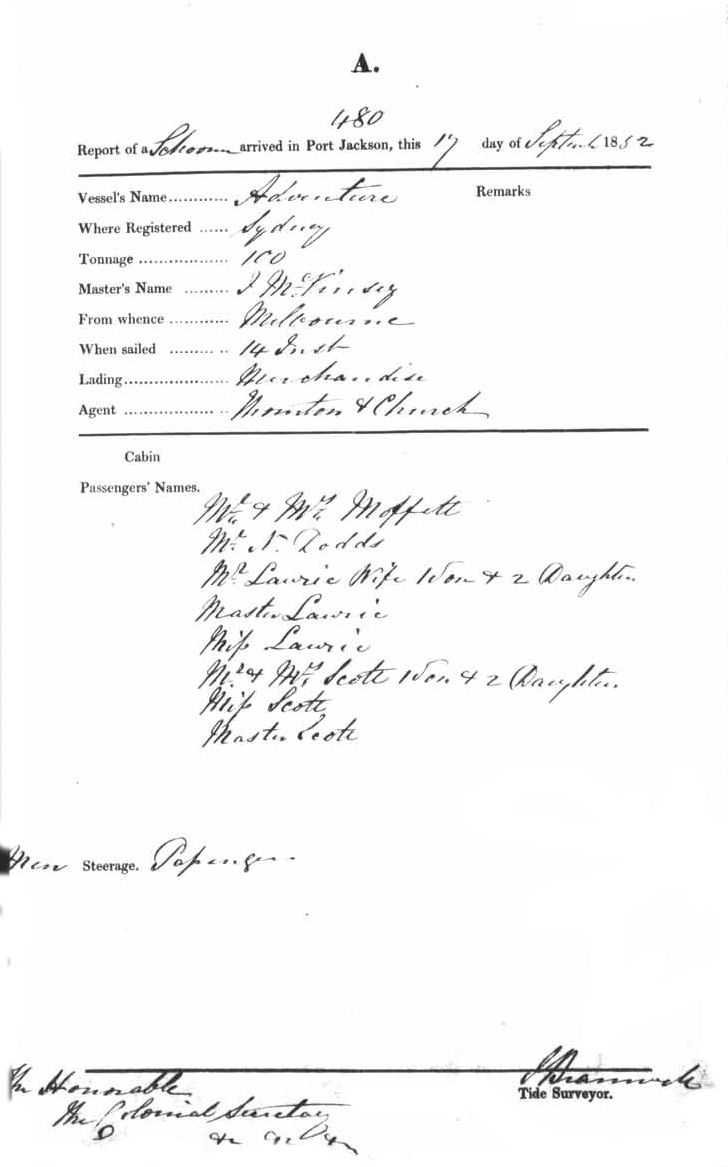 A.
480
Report of a Schooner arrived in Port Jackson, this 17 day of September 1852
Vessel's Name............ Adventure Remarks
Where Registered ...... Sydney
Tonnage .................. 100
Master's Name ......... J McKinsey
From whence ............ Melbourne
When sailed ......... .. 14 Inst
Lading..................... Merchandise
Agent .................. .. Thornton & Church
Cabin
Passengers' Names.
Mr. & Mrs. Moffett
Mr. N. Dodds
Mr Lawrie Wife 1 Son & 2 Daughters
Master Lawrie
Miss Lawrie
Mr & Mrs Scott 1 Son & 2 Daughters
Miss Scott
Master Scott
Men Steerage. Passengers
The Honorable
The Colonial Secretary
&c &c &c
Tide Surveyor.